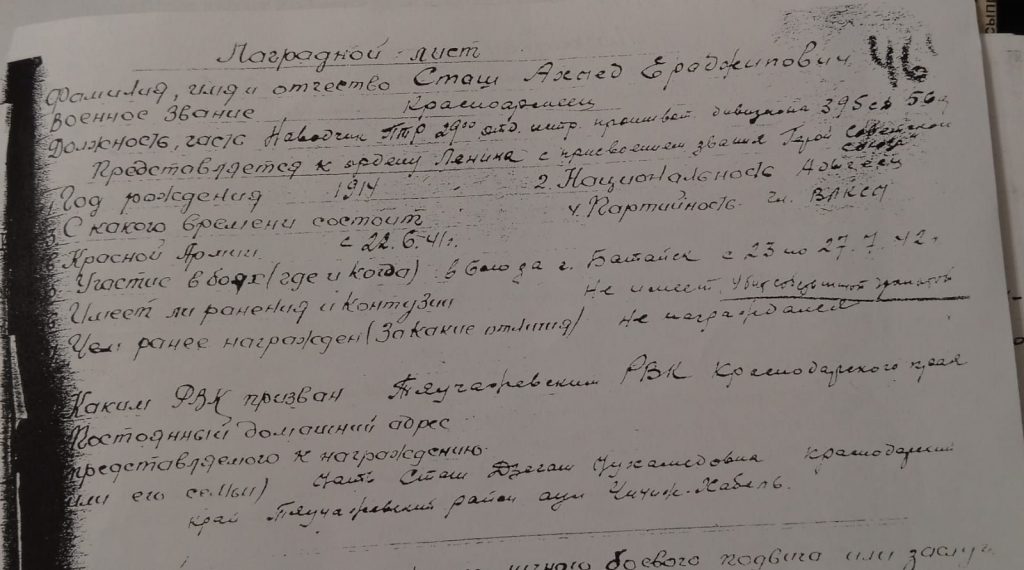 46
Наградной лист
Фамилия, имя и отчество Сташ Ахмед Ераджипович
Военное звание Красноармеец
Должность, часть Наводчик ПТР 29 отд. истр. дивизиона 395 сд 56 а
Представляется к ордену Ленина с присвоением звания Герой Советской союза
Год рождения 1914 2. Национальность Адыгеец
С какого времени состоит 4. Партийность чл. ВЛКСМ
Красной Армии с 22.6.41г.
Участие в боях (где и когда) в бою за г. Батайск с 23 по 27.7.42г.
Имеет ли ранения и контузии Не имеет.
Чем ранее награжден (за какие отличия) не награждался
Каким РВК призван Тяучажевским РВК Краснодарского края
Постоянный домашний адрес
представляемого к награждению
или его семьи) Мать Сташ Дзегаш Чукамедовна Краснодарский
край Тяучажевский район аул Чичих-Хабель.
личного боевого подвига или заслуг